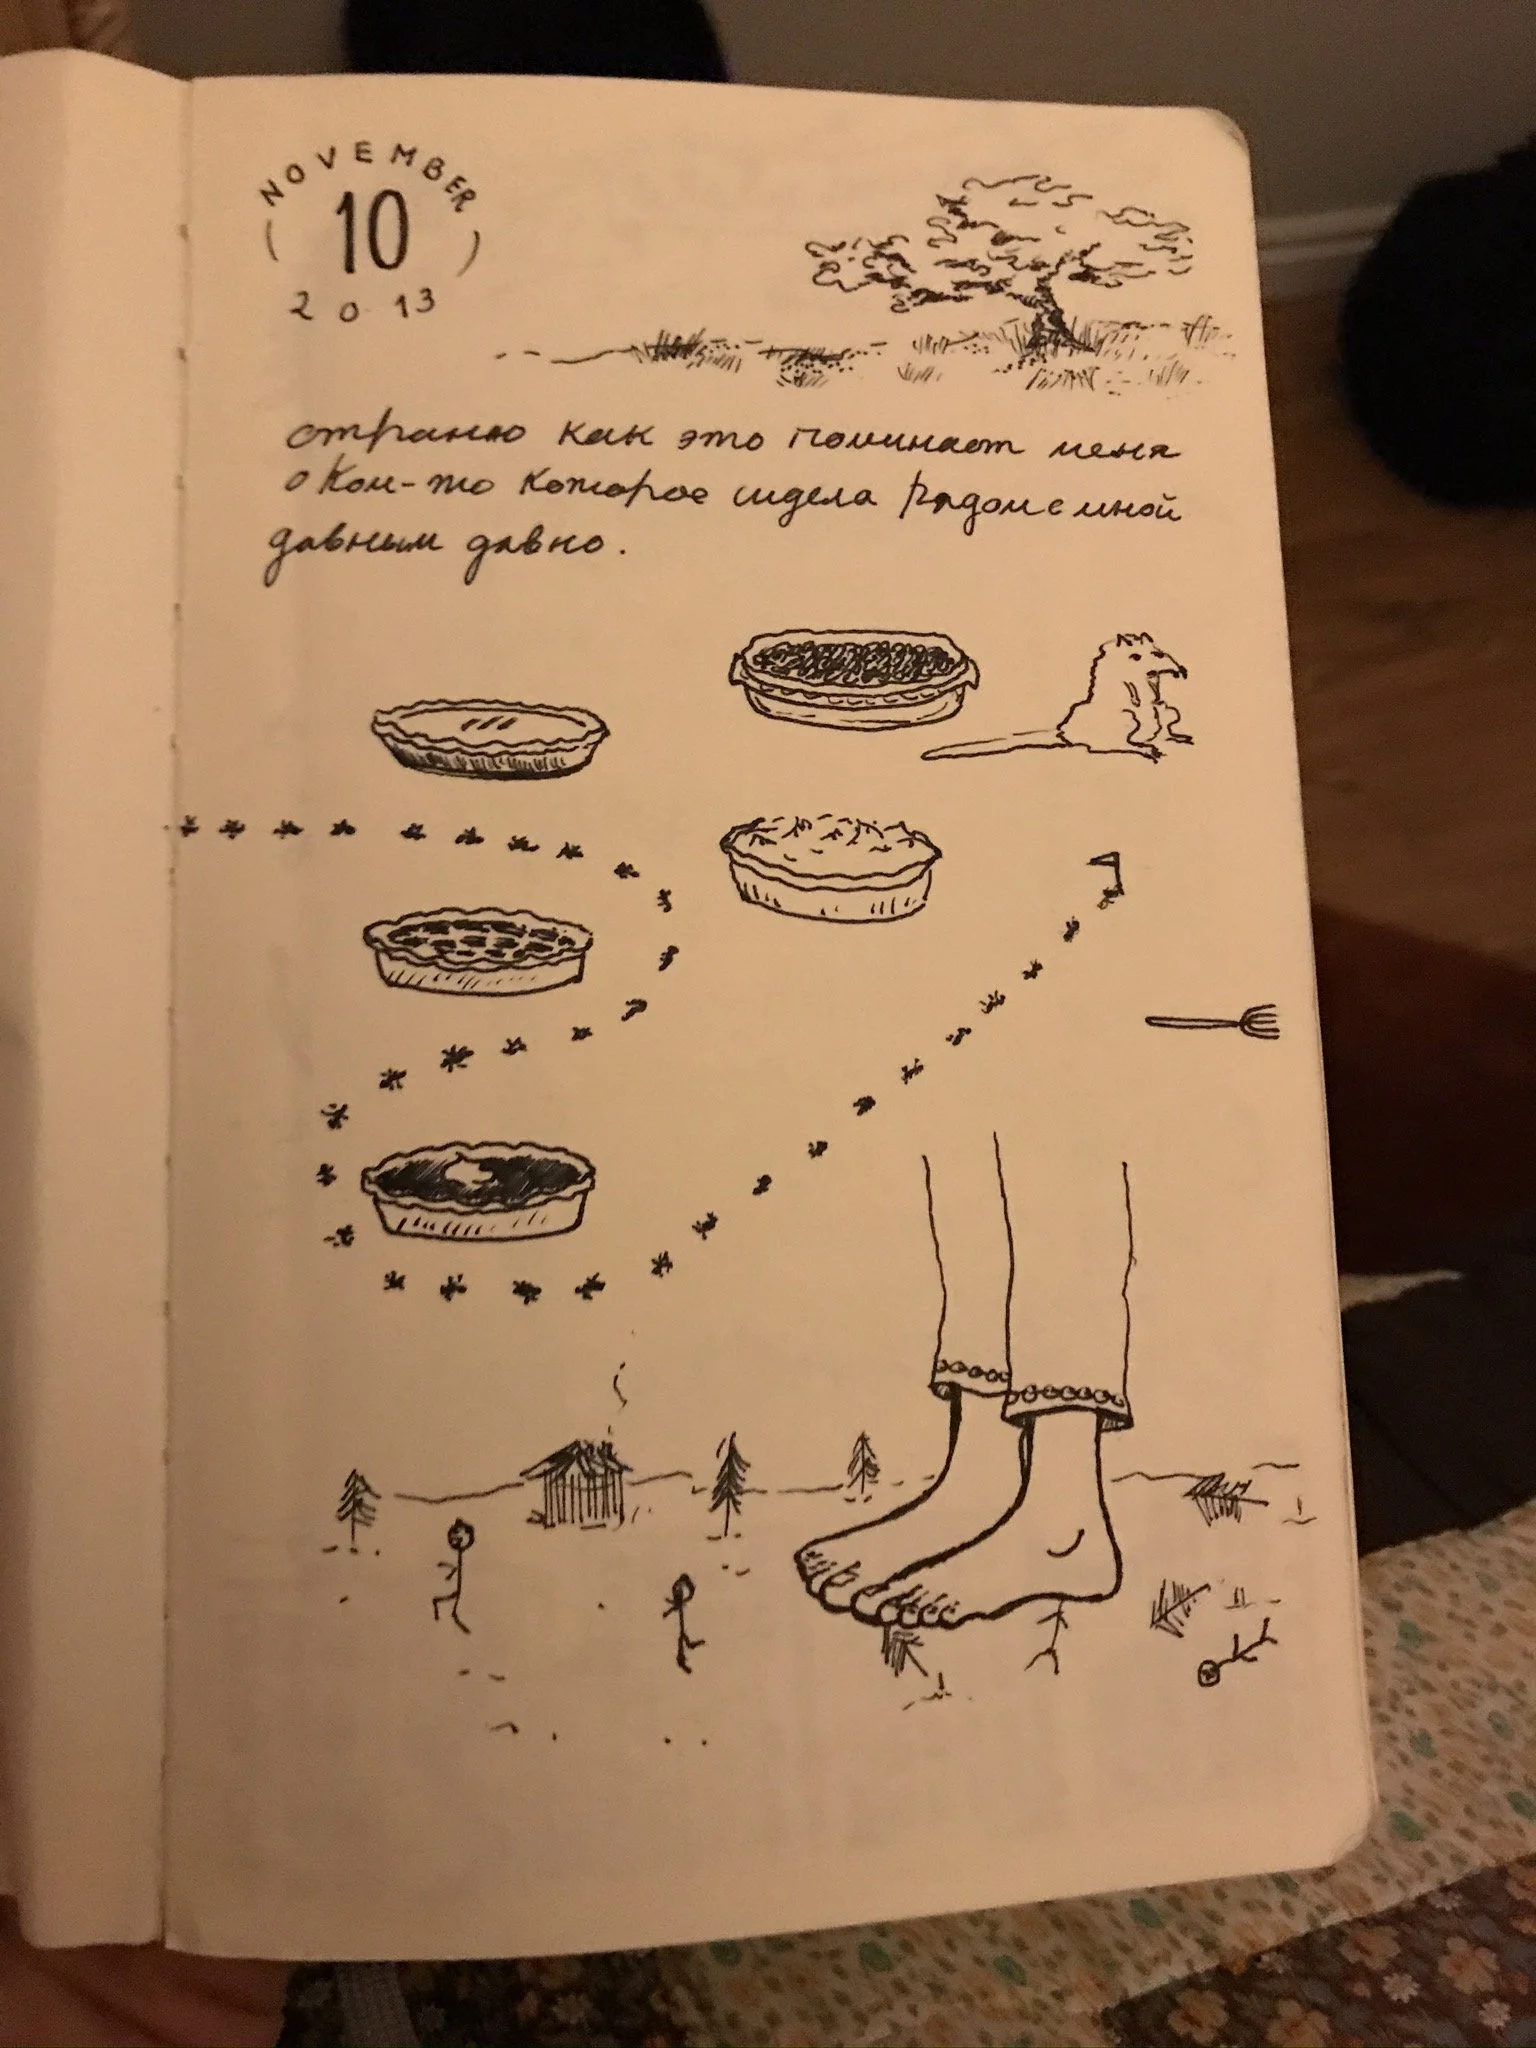 NOVEMBER
10
2013
странно как это поминает меня
о Ком-то которое сидела рядом с мной
давным давно.